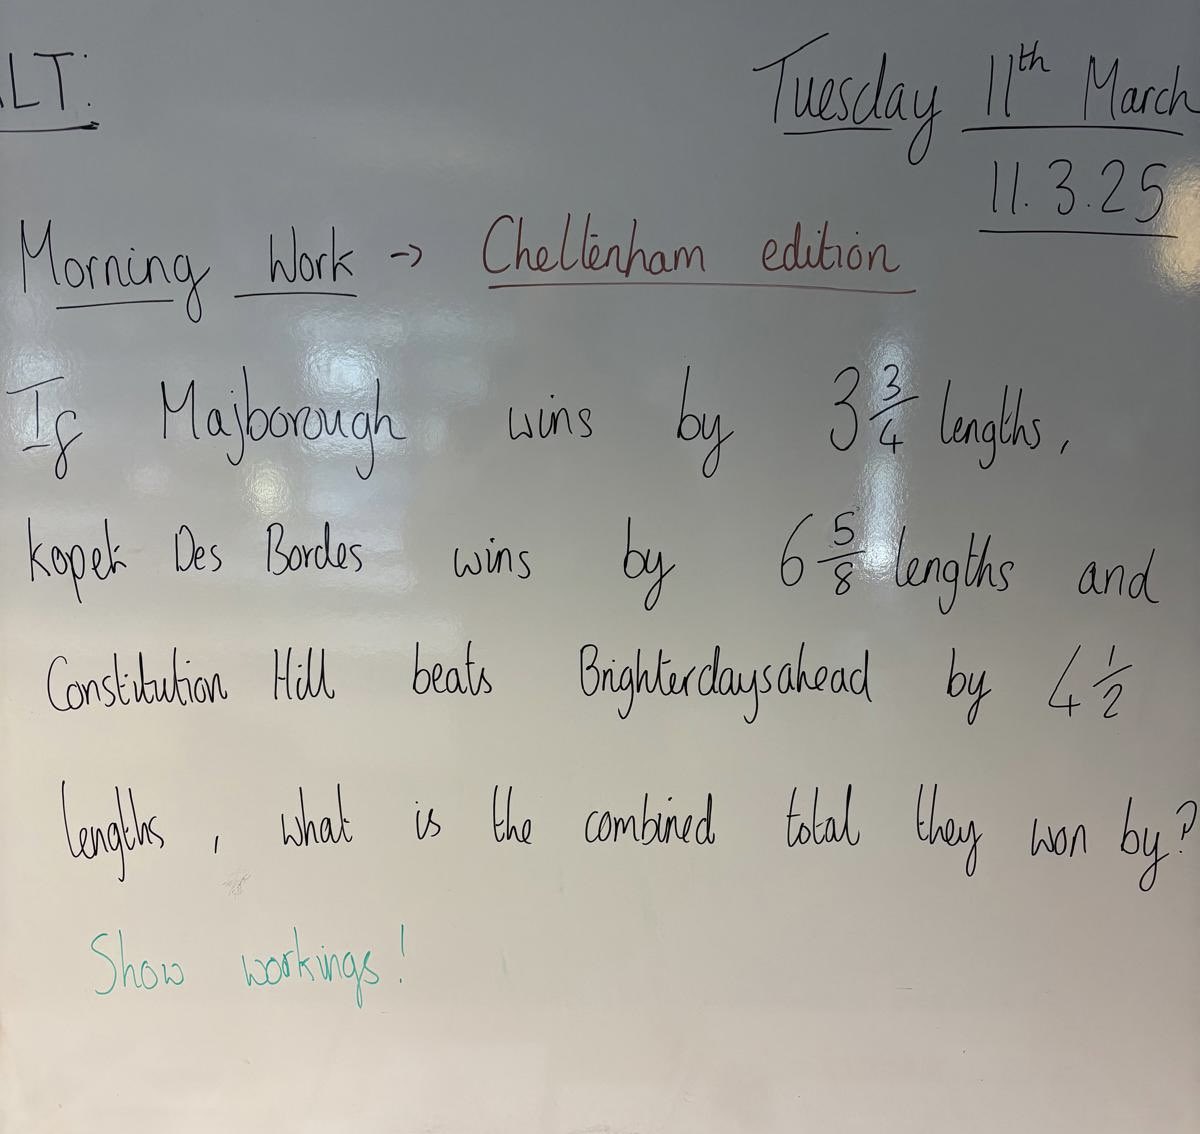 ALT:
Tuesday 11th March
11.3.25
Morning Work → Cheltenham edition
If Majborough wins by 3 3/4 lengths,
Kopek Des Bordes wins by 6 5/8 lengths and
Constitution Hill beats Brighterdaysahead by 4 1/2
lengths, what is the combined total they won by?
Show workings!